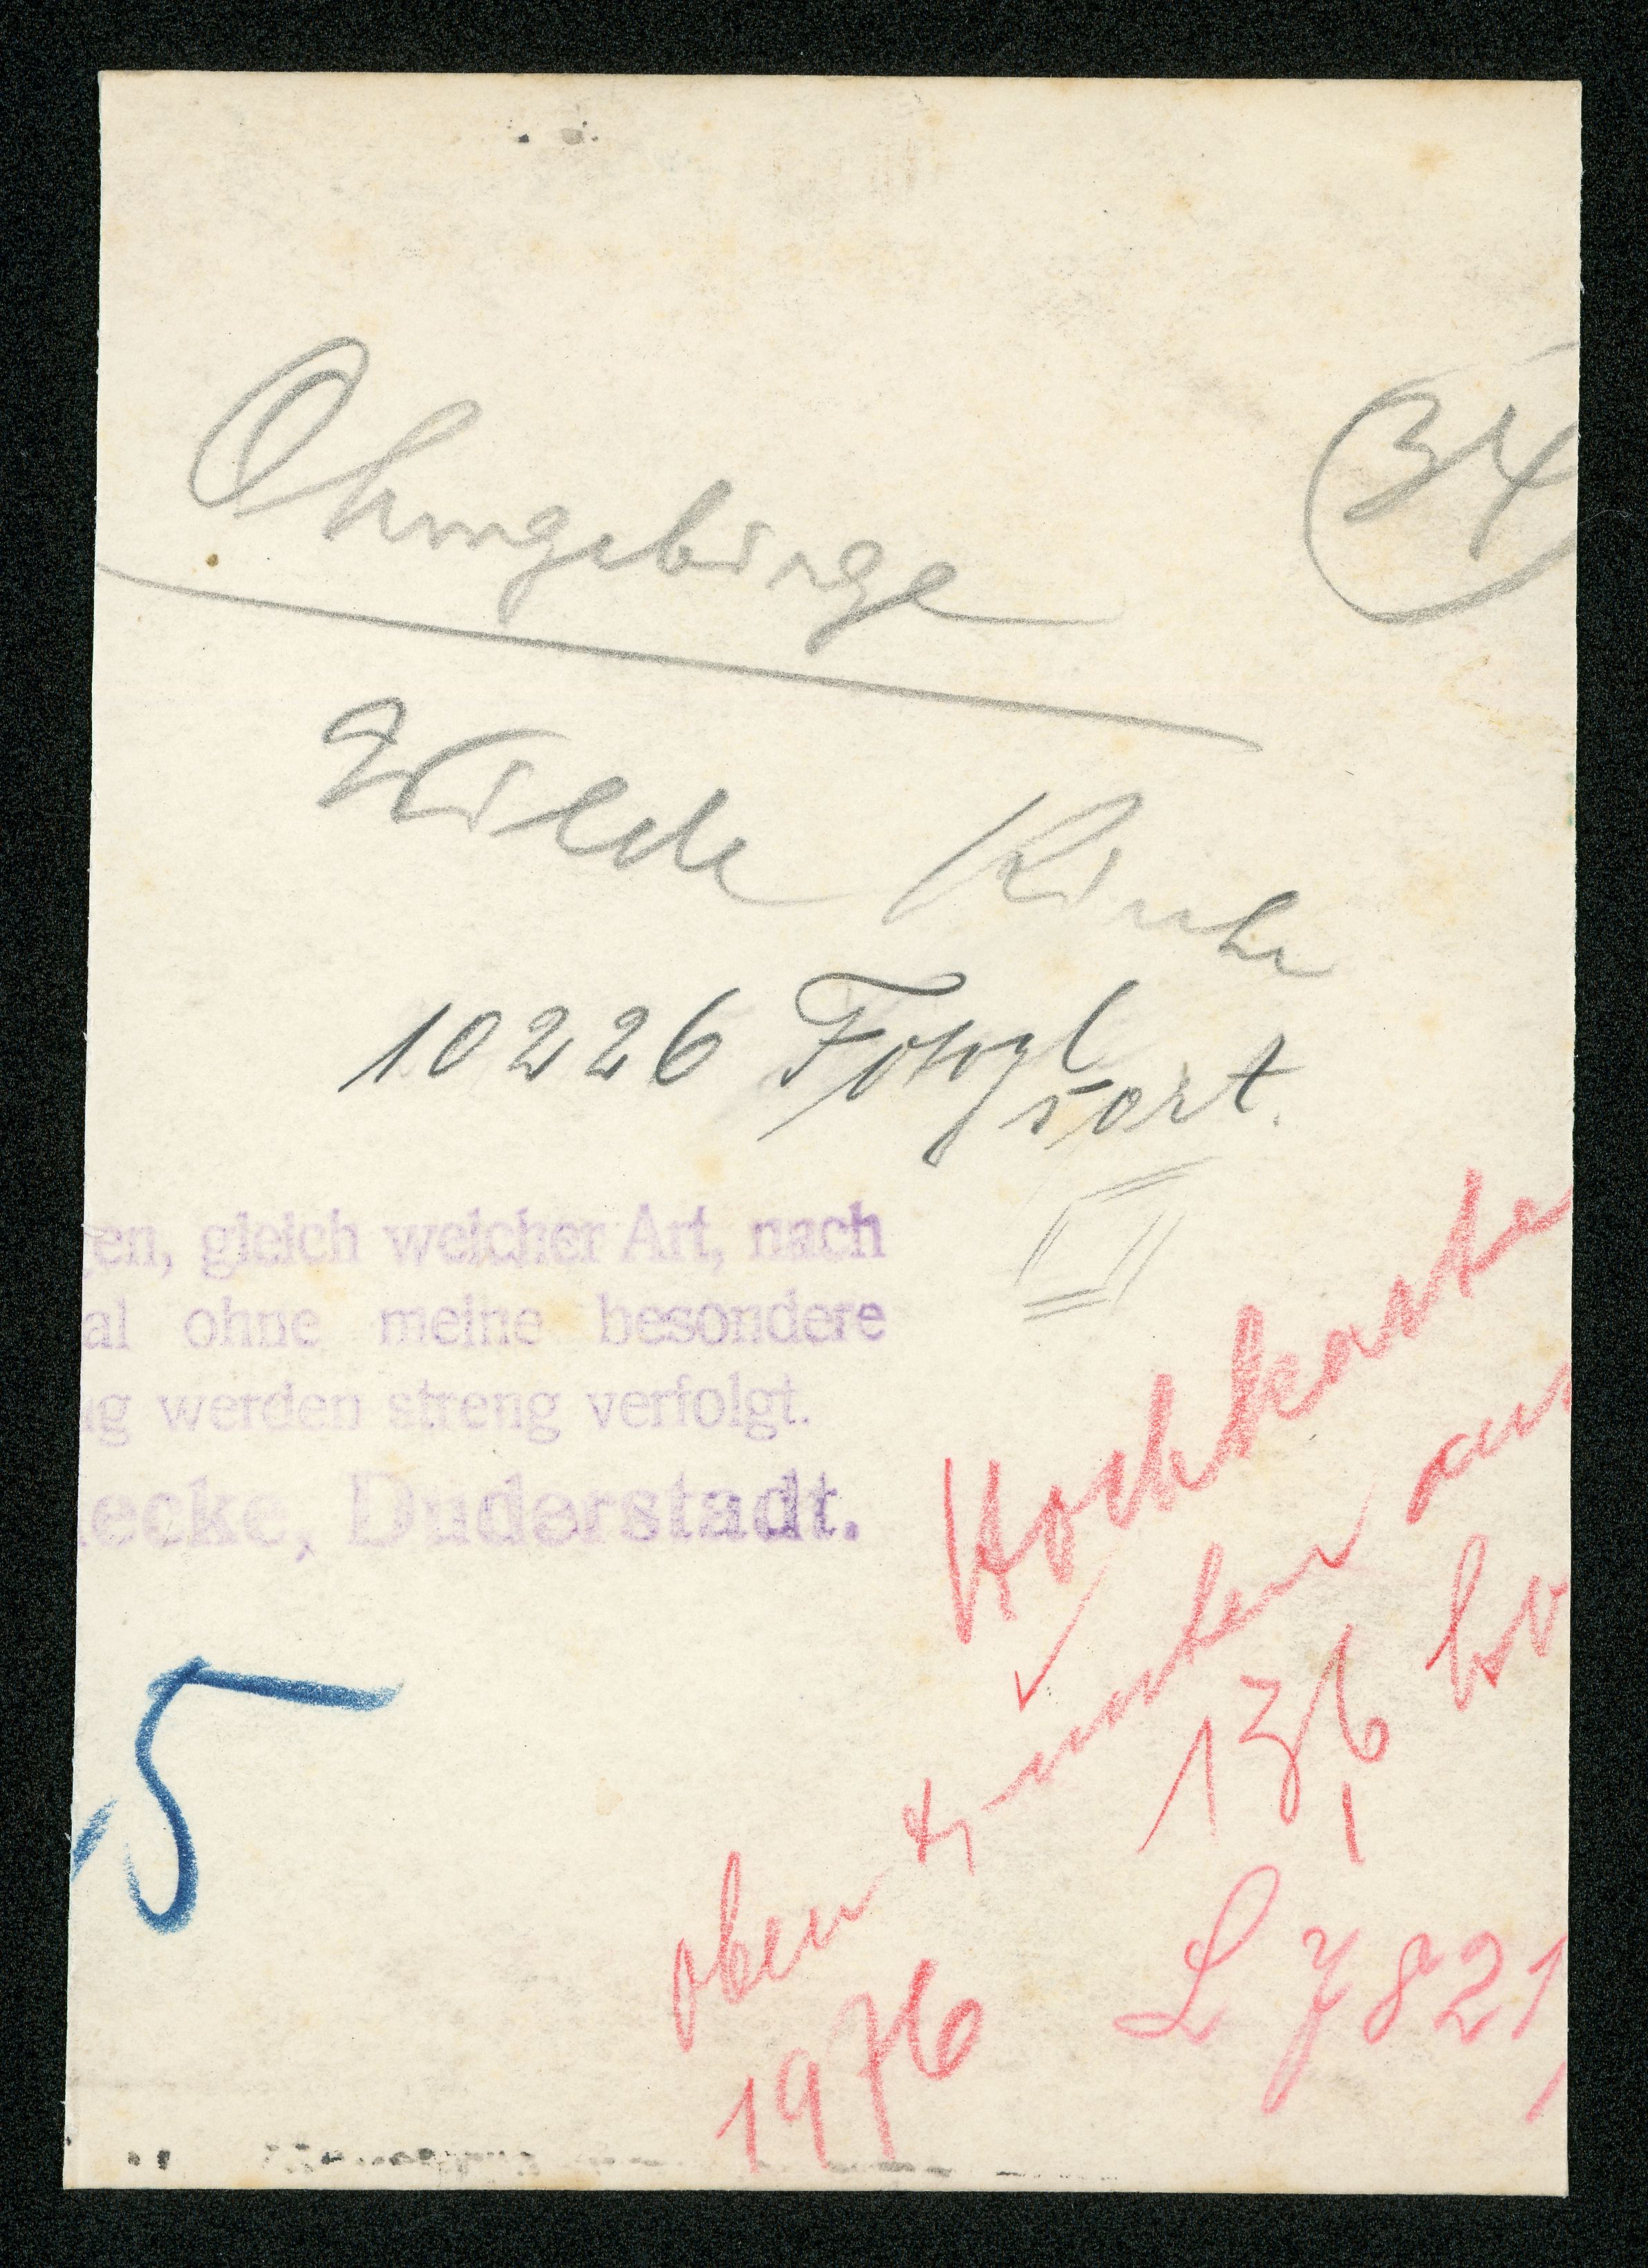 Ohmgebirge
34
Wilde Kirche
10226
sort.
gen, gleich welcher Art, nach
al ohne meine besondere
ug werden streng verfolgt.
ecke, Duderstadt.
Hochkante
oben + unten aus
136
5
1976
L 7821